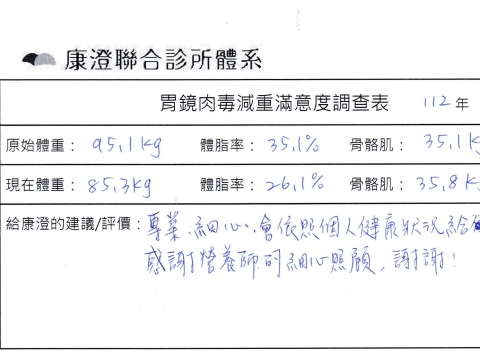 康澄聯合診所體系
胃鏡肉毒減重滿意度調查表 112 年
原始體重： 95,1kg 體脂率： 35,1% 骨骼肌： 35,1k
現在體重： 85,3kg 體脂率： 26,1% 骨骼肌： 35,8k
給康澄的建議/評價： 專業、細心、會依照個人健康狀況給
感謝營養師的細心照顧，謝謝！